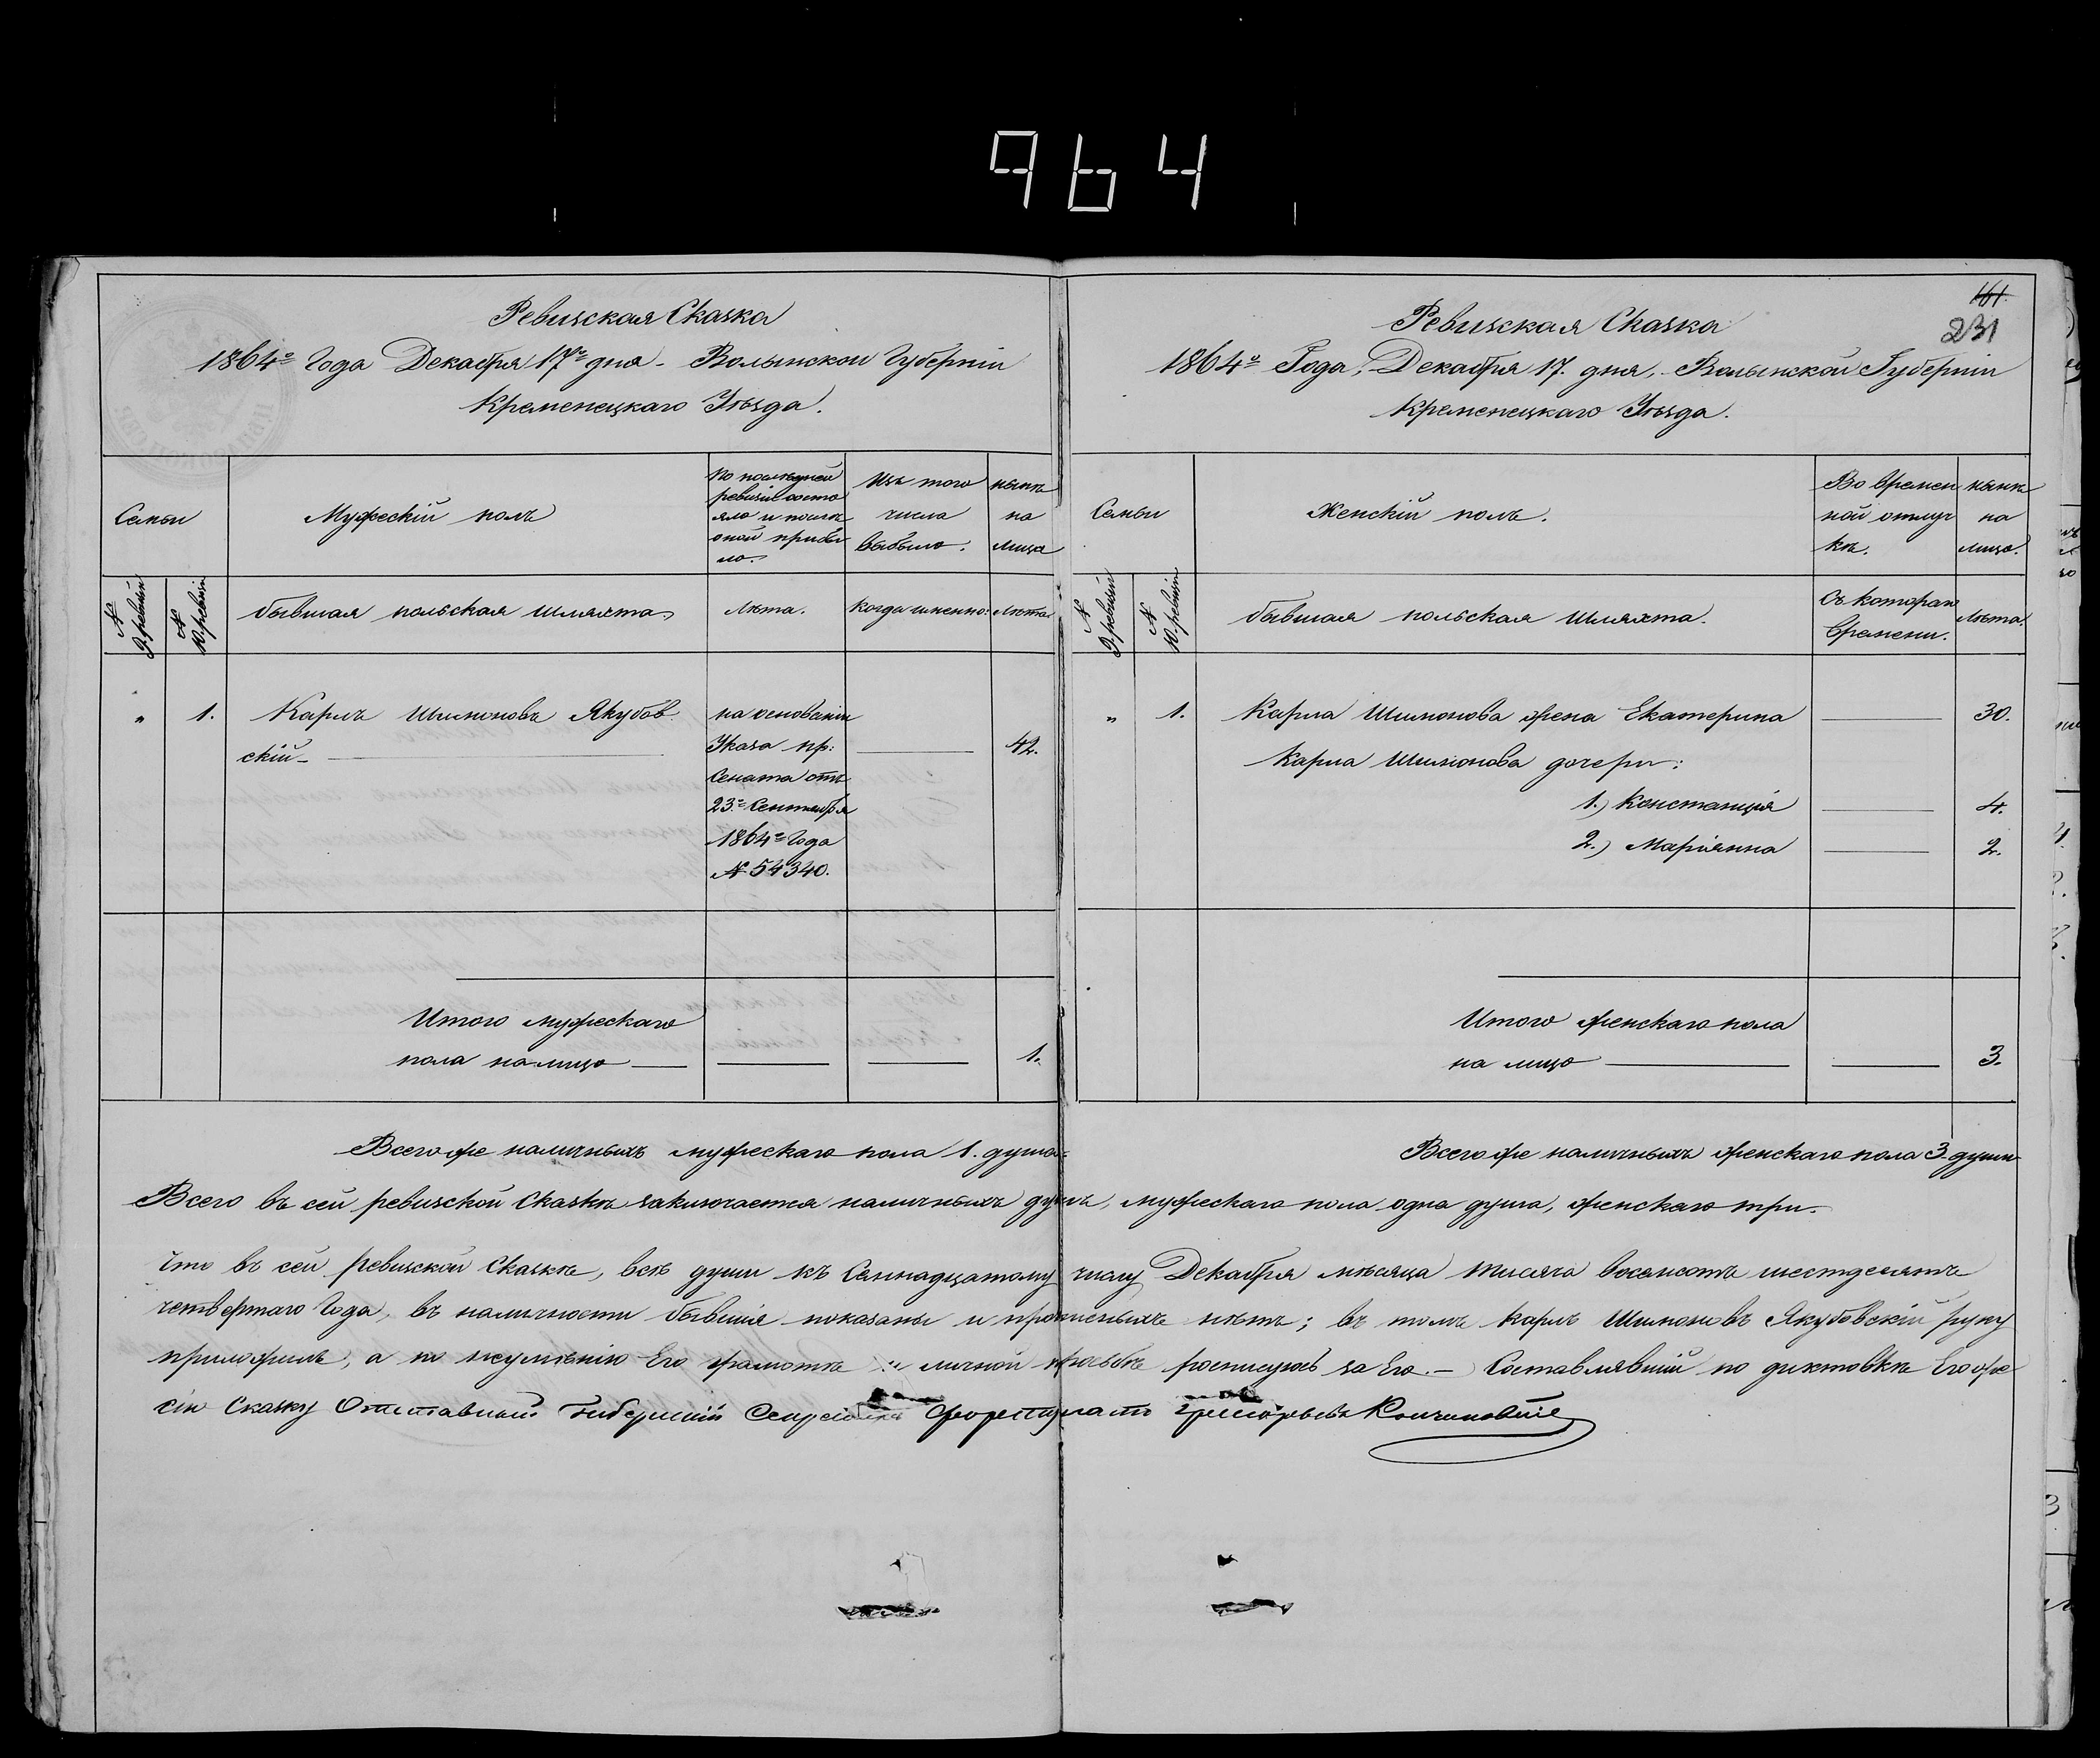 964
Ревизская Сказка
1864го Года Декабря 17го дня - Волынской Губерніи
Кременецкаго Уѣзда.
Семьи
Мужескій полъ
По послѣдней
ревизіи состо
яло и послѣ
оной прибы
ло.
Изъ того
числа
выбыло.
нынѣ
на
лицо
№ 9. ревизіи
№ 10. ревизіи
бывшая польская шляхта.
Лѣта.
Когда именно:
Лѣта
„ 1. Карлъ Шимоновъ Якубов
скій — 42.
на основаніи
Указа пр:
Сената отъ
23го Сентября
1864го Года
№ 54340.
Итого мужескаго
пола на лицо — 1.
Всего же наличныхъ мужескаго пола 1. душа.
161.
231
Ревизская Сказка
1864го Года, Декабря 17. дня, - Волынской Губерніи
Кременецкаго Уѣзда.
Семьи
Женскій полъ.
Во времен
ной отлуч
кѣ.
нынѣ
на
лицо.
№ 9. ревизіи
№ 10. ревизіи
бывшая польская шляхта.
Съ котораго
времени.
Лѣта.
„ 1. Карла Шимонова жена Екатерина — 30.
Карла Шимонова дочери:
1.) Констанція — 4.
2.) Маріянна — 2.
Итого женскаго пола
на лицо — 3.
Всего же наличныхъ женскаго пола 3. души
Всего въ сей ревизской Сказкѣ заключается наличныхъ душъ, мужескаго пола одна душа, женскаго три.
Что въ сей ревизской Сказкѣ, всѣ души къ Семнадцатому числу Декабря мѣсяца тысяча восемсотъ шестдесятъ
четвертаго Года, въ наличности бывшія показаны и прописныхъ нѣтъ; въ томъ Карлъ Шимоновъ Якубовскій руку
приложилъ, а по неумѣнію Его грамотѣ и личной просьбѣ росписуюсь за Его. - Составлявшій по диктовкѣ Его же
сію Сказку Отставный Губернскій Секретарь